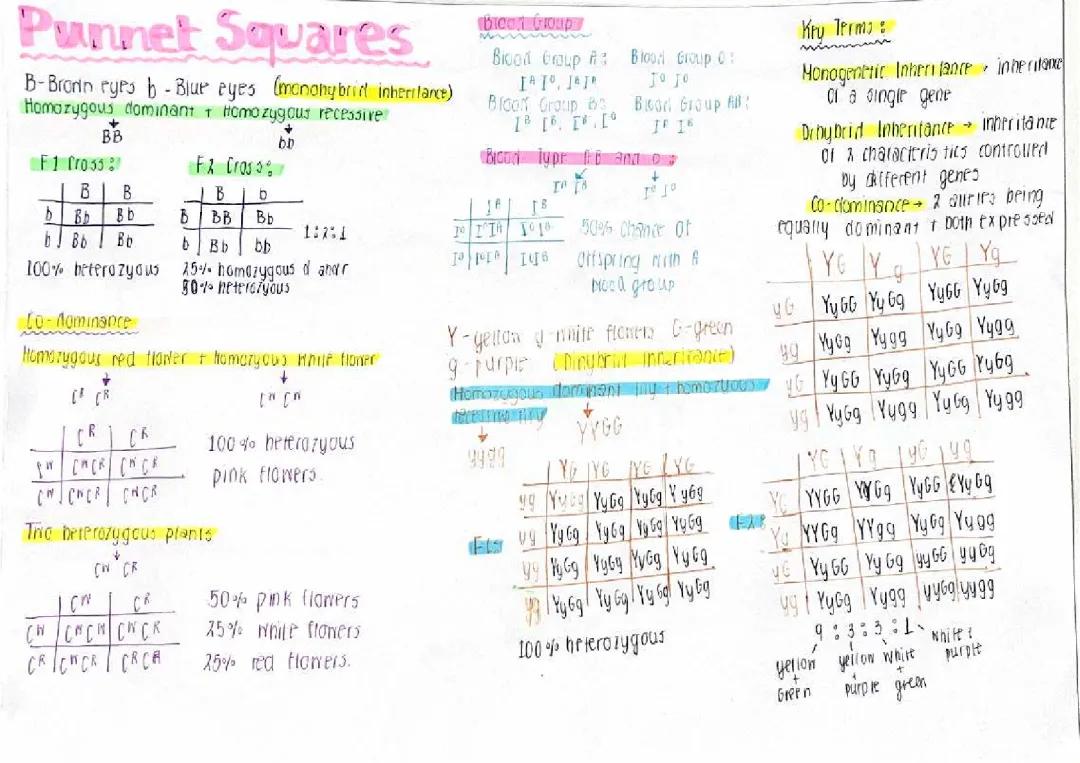 Punnet Squares
B-Brown eyes b - Blue eyes (monohybrid inheritance)
Homozygous dominant + Homozygous recessive
BB bb
F1 Cross: F2 Cross:
B B
b Bb Bb
b Bb Bb
B b
B BB Bb
b Bb bb
1:2:1
100% heterozygous
25% homozygous d and r
50% heterozygous
Co-dominance
Homozygous red flower + homozygous white flower
Cᴿ Cᴿ Cᵂ Cᵂ
Cᴿ Cᴿ
Cᵂ CᵂCᴿ CᵂCᴿ
Cᵂ CᵂCᴿ CᵂCᴿ
100% heterozyous
pink flowers.
Two heterozygous plants
Cᵂ Cᴿ
Cᵂ Cᴿ
Cᵂ CᵂCᵂ CᵂCᴿ
Cᴿ CᵂCᴿ CᴿCᴿ
50% pink flowers
25% white flowers
25% red flowers.
Blood Group
Blood Group A: Blood Group O:
Iᴬ Iᴼ, IᴬIᴬ Iᴼ Iᴼ
Blood Group B: Blood Group AB:
Iᴮ Iᴮ, Iᴮ Iᴼ Iᴬ Iᴮ
Blood Type AB and O:
Iᴬ Iᴮ Iᴼ Iᴼ
Iᴬ Iᴮ
Iᴼ IᴼIᴬ IᴼIᴮ
Iᴼ IᴼIᴬ IᴼIᴮ
50% chance of
offspring with A
blood group
Y-yellow y-white flowers G-green
g-purple (Dihybrid inheritance)
Homozygous dominant lily + homozuous
recessive lily
YYGG
yygg
F1:
YG YG YG YG
yg YyGg YyGg YyGg YyGg
yg YyGg YyGg YyGg YyGg
yg YyGg YyGg YyGg YyGg
yg YyGg YyGg YyGg YyGg
100% heterozygous
Key Terms:
Monogenetic Inheritance → inheritance
of a single gene
Dihybrid Inheritance → inheritance
of 2 characteristics controlled
by different genes
Co-dominance → 2 alleles being
equally dominant + both expressed
YG Yg YG Yg
yG YyGG YyGg YyGG YyGg
yg YyGg Yygg YyGg Yygg
yG YyGG YyGg YyGG YyGg
yg YyGg Yygg YyGg Yygg
F2:
YG Yg yG yg
YG YYGG YYGg YyGG YyGg
Yg YYGg YYgg YyGg Yygg
yG YyGG YyGg yyGG yyGg
yg YyGg Yygg yyGg yygg
9:3:3:1
yellow + Green
yellow + purple
white + green
white + purple